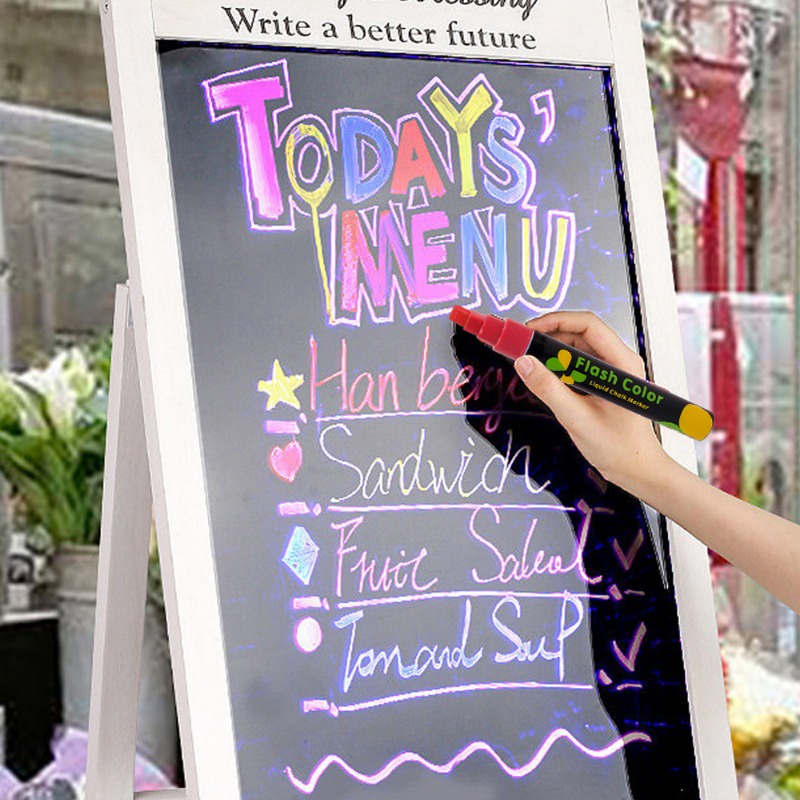 Write a better future
TODAYS'
MENU
Han
Sandwich
Fruit Salad
Soup
Flash Color
Liquid Chalk Marker